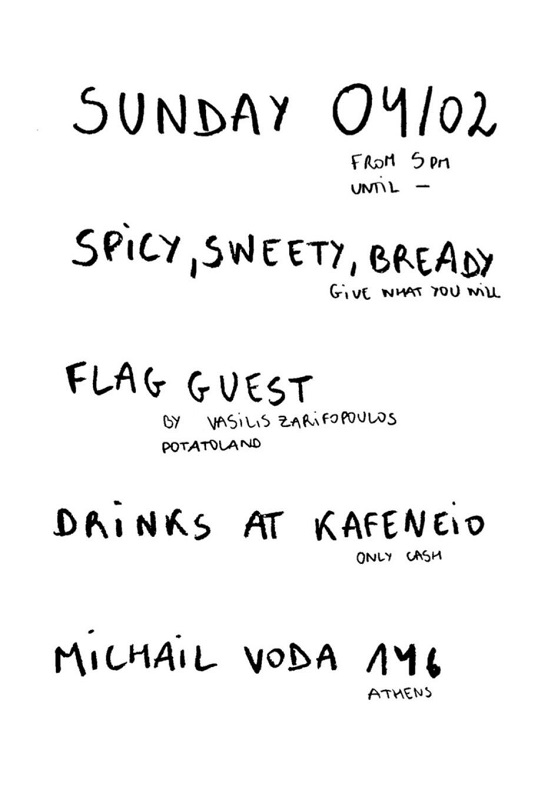 SUNDAY 04/02
FROM 5 PM
UNTiL –
SPiCY, SWEETY, BREADY
GiVE WHAT YOU WiLL
FLAG GUEST
BY VASiLiS ZARiFOPOULOS
POTATOLAND
DRiNKS AT KAFENEiO
ONLY CASH
MiCHAiL VODA 146
ATHENS